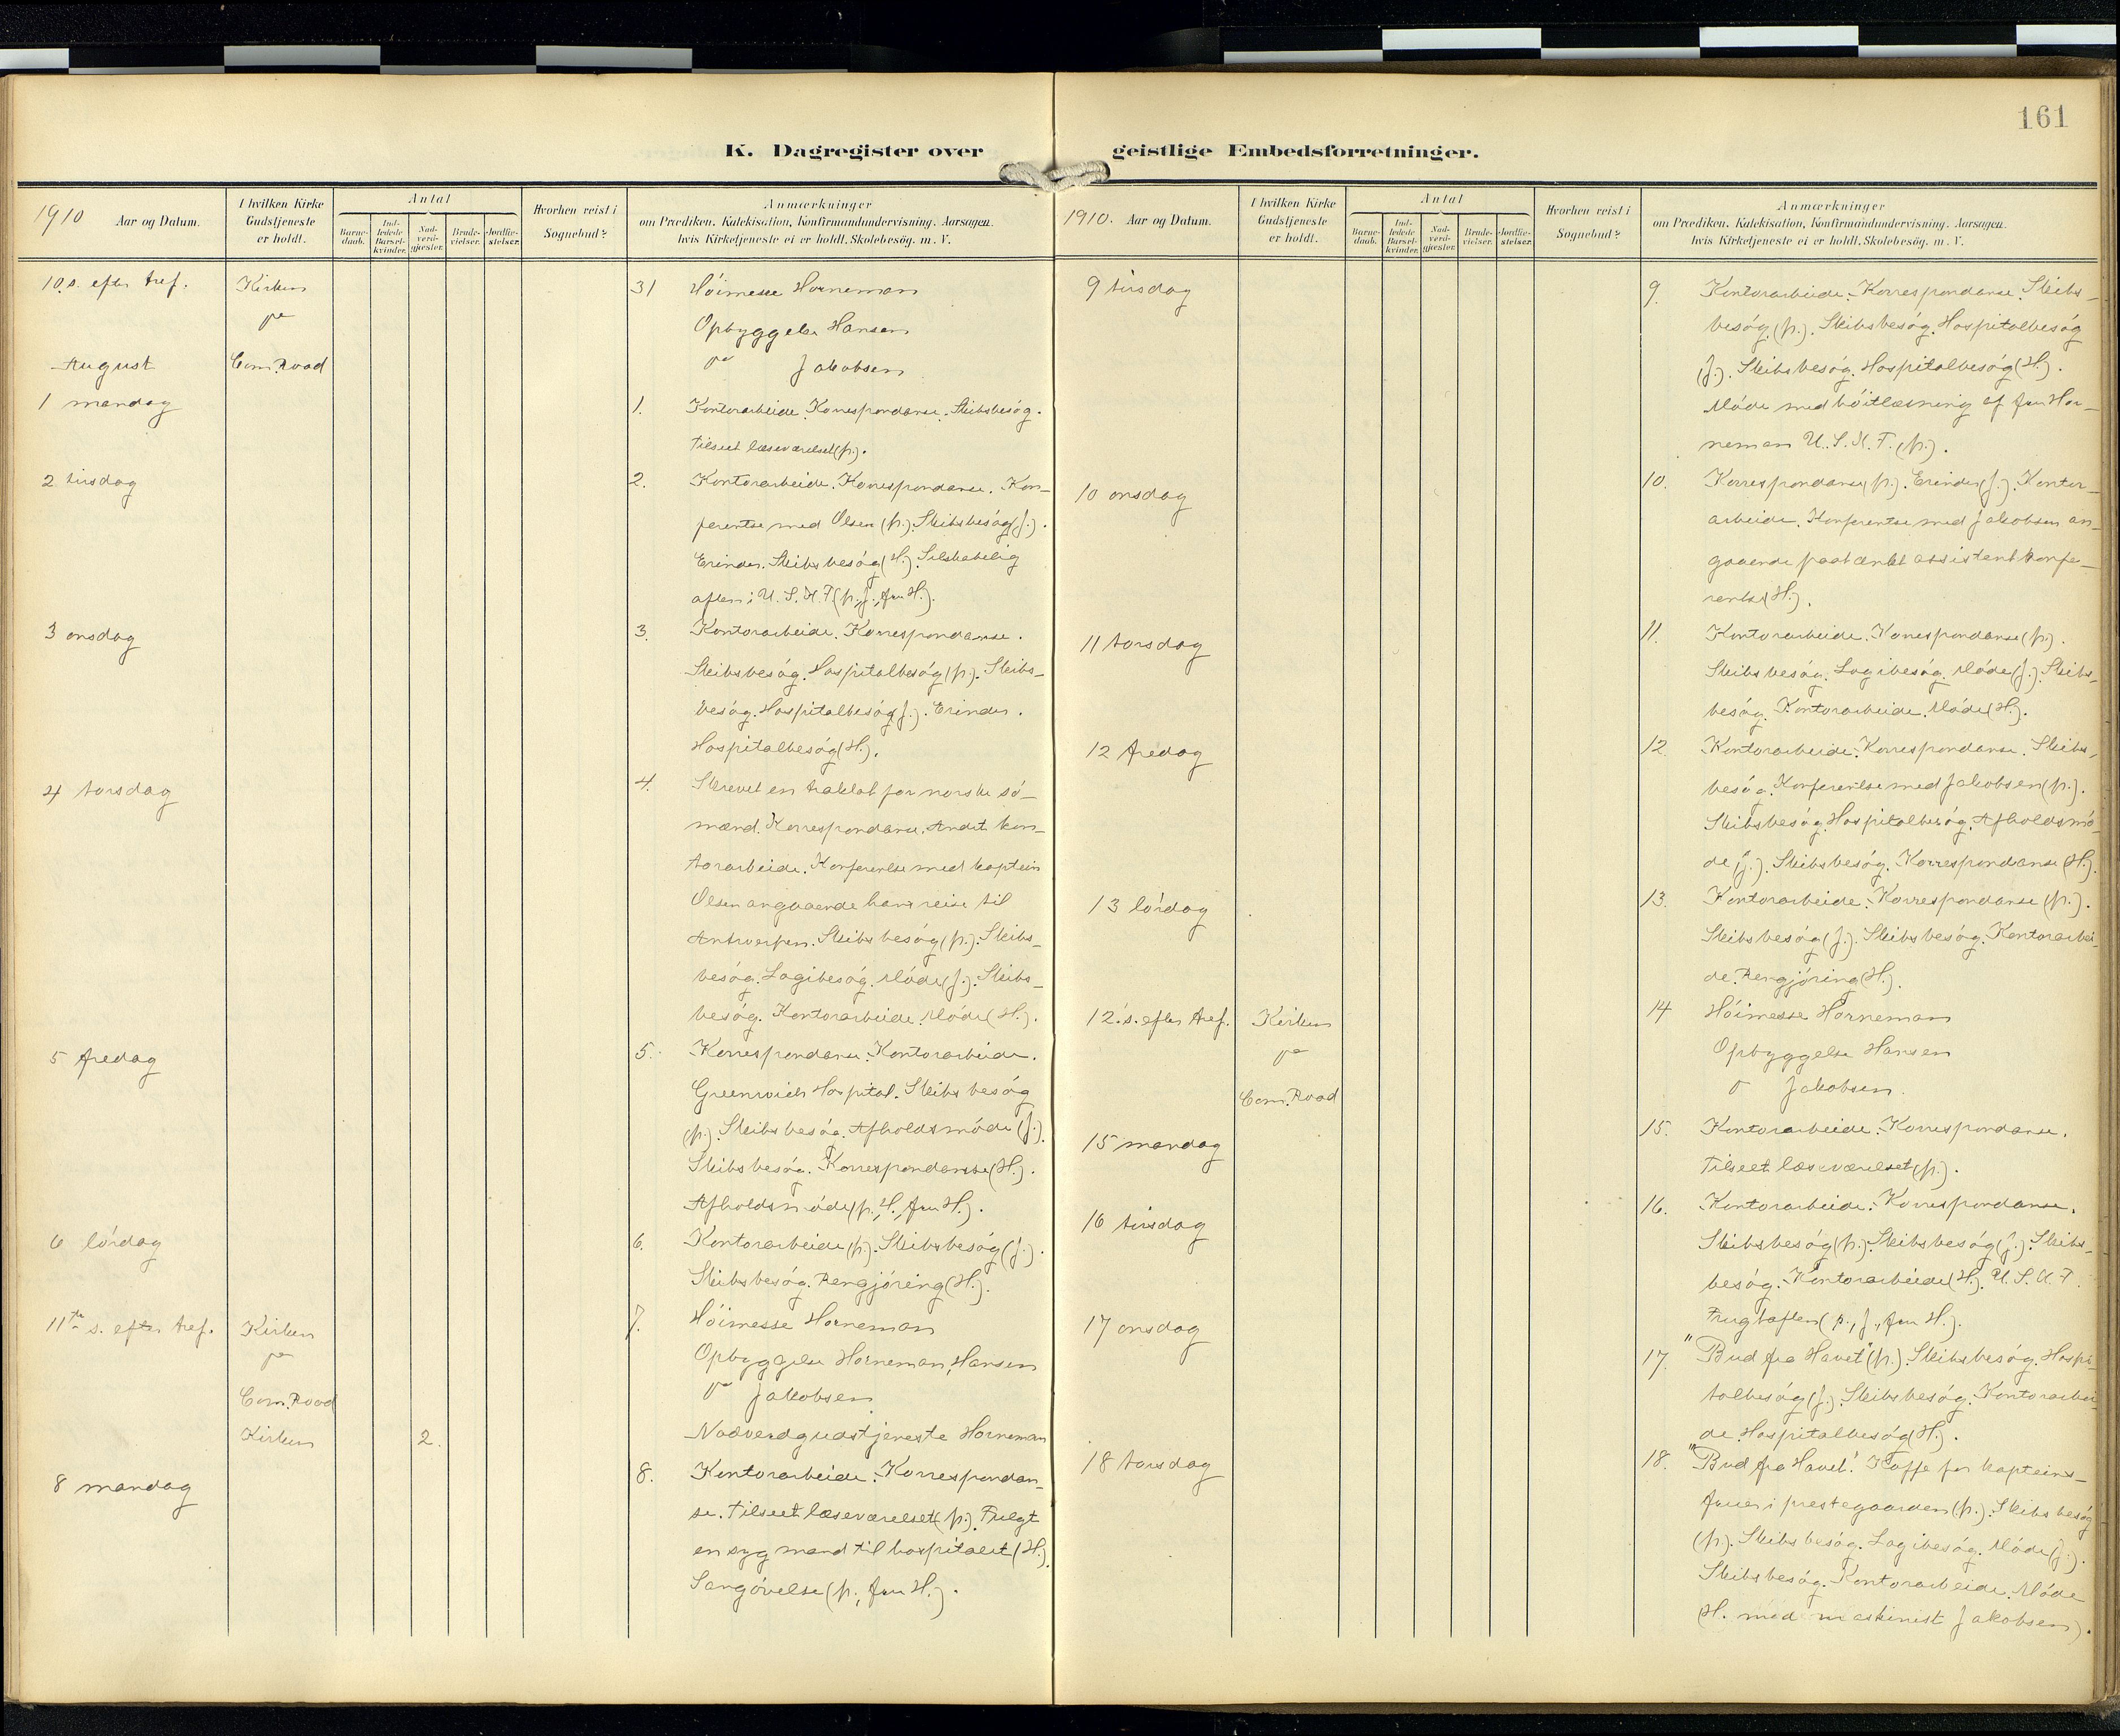 161
K. Dagregister over geistlige Embedsforretninger.
1910 Aar og Datum.
I hvilken Kirke Gudstjeneste er holdt.
Antal
Barne-daab.
Ind-ledede Barsel-kvinder.
Nad-verd-gjester.
Brude-vielser.
Jordfæ-stelser.
Hvorhen reist i Sognebud?
Anmærkninger
om Prædiken, Katekisation, Konfirmandundervisning, Aarsagen,
hvis Kirketjeneste ei er holdt, Skolebesög. m. V.
10.s. efter tref. Kirken 31 Höimesse Horneman
Opbyggelse Hansen
August Com. Road Jakobsen
1 mandag 1. Kontorarbeide. Korrespondanse. Skibsbesög.
Tilseet læseværelset (p.).
2 tirsdag 2. Kontorarbeide. Korrespondanse. Kon-
ferentse med Olsen (p.). Skibsbesög (J.).
Erinder. Skibsbesög (H.). Selskabelig
aften i U. S. K. F. (p., J., fru H.).
3 onsdag 3. Kontorarbeide. Korrespondanse.
Skibsbesög. Hospitalbesög (p.). Skibs-
besög. Hospitalbesög (J.). Erinder.
Hospitalbesög (H.).
4 torsdag 4. Skrevet en traktat for norske sö-
mænd. Korrespondanse. Andet kon-
torarbeide. Konferentse med kaptein
Olsen angaaende hans reise til
Antwerpen. Skibsbesög (p.). Skibs-
besög. Logibesög. Möde (J.). Skibs-
besög. Kontorarbeide. Möde (H.).
5 fredag 5. Korrespondanse. Kontorarbeide.
Greenwich Hospital. Skibsbesög
(p.). Skibsbesög. Afholdsmöde (J.).
Skibsbesög. Korrespondanse (H.).
Afholdsmöde (p., H., fru H.).
6 lördag 6. Kontorarbeide (p.). Skibsbesög (J.).
Skibsbesög. Rengjöring (H.).
11te s. efter tref. Kirken 7. Höimesse Horneman
Opbyggelse Horneman, Hansen
Com. Road Jakobsen
Kirken 2. Nadverdgudstjeneste Horneman
8 mandag 8. Kontorarbeide. Korrespondan-
se. Tilseet læseværelset (p.). Fulgt
en syg mand til hospitalet (H.).
Sangövelse (p., fru H.).
1910. Aar og Datum.
I hvilken Kirke Gudstjeneste er holdt.
Antal
Barne-daab.
Ind-ledede Barsel-kvinder.
Nad-verd-gjester.
Brude-vielser.
Jordfæ-stelser.
Hvorhen reist i Sognebud?
Anmærkninger
om Prædiken, Katekisation, Konfirmandundervisning, Aarsagen,
hvis Kirketjeneste ei er holdt, Skolebesög. m. V.
9 tirsdag 9. Kontorarbeide. Korrespondanse. Skibs-
besög (p.). Skibsbesög. Hospitalbesög
(J.). Skibsbesög. Hospitalbesög (H.).
Möde med höitlæsning af fru Hor-
neman U. S. K. F. (p.).
10 onsdag 10. Korrespondanse (p.). Erinder (J.). Kontor-
arbeide. Konferentse med Jakobsen an-
gaaende paatænkt assistentkonfe-
rentse (H.).
11 torsdag 11. Kontorarbeide. Korrespondanse (p.).
Skibsbesög. Logibesög. Möde (J.). Skibs-
besög. Kontorarbeide. Möde (H.).
12 fredag 12. Kontorarbeide. Korrespondanse. Skibs-
besög. Konferentse med Jakobsen (p.).
Skibsbesög. Hospitalbesög. Afholdsmö-
de (J.). Skibsbesög. Korrespondanse (H.).
13 lördag 13. Kontorarbeide. Korrespondanse (p.).
Skibsbesög (J.). Skibsbesög. Kontorarbei-
de. Rengjöring (H.).
12. s. efter tref. Kirken 14 Höimesse Horneman
Opbyggelse Hansen
Com. Road Jakobsen.
15 mandag 15. Kontorarbeide. Korrespondanse.
Tilseet læseværelset (p.).
16 tirsdag 16. Kontorarbeide. Korrespondanse.
Skibsbesög (p.). Skibsbesög (J.). Skibs-
besög. Kontorarbeide (H.). U. S. K. F.
Frugtaften (p., J., fru H.).
17 onsdag 17. "Bud fra Havet" (p.). Skibsbesög. Hospi-
talbesög (J.). Skibsbesög. Kontorarbei-
de. Hospitalbesög (H.).
18 torsdag 18. "Bud fra Havet". Kaffe for kapteins-
fruer i prestegaarden (p.). Skibsbesög
(p.). Skibsbesög. Logibesög. Möde (J.).
Skibsbesög. Kontorarbeide. Möde
(H. med maskinist Jakobsen).